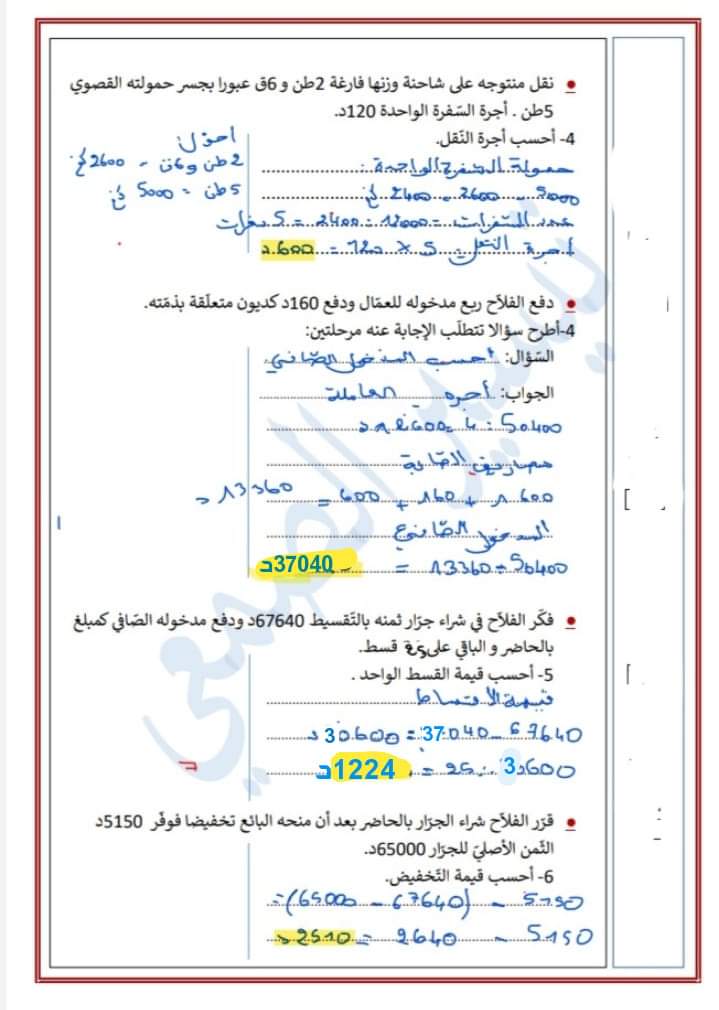 ● نقل منتوجه على شاحنة وزنها فارغة 2طن و 6ق عبورا بجسر حمولته القصوي
5طن . أجرة السّفرة الواحدة 120د.
4- أحسب أجرة النّقل.
أحوّل
2طن و6ق = 2600 كغ
5طن = 5000 كغ
حمولة السفرة الواحدة:
5000 - 2600 = 2400 كغ
عدد السّفرات = 12000 : 2400 = 5 سفرات
أجرة النّقل: 5 × 120 = 600د
● دفع الفلاّح ربع مدخوله للعمّال ودفع 160د كديون متعلّقة بذمّته.
4-أطرح سؤالا تتطلّب الإجابة عنه مرحلتين:
السّؤال: أحسب المدخول الصّافي
الجواب: أجرة العاملة
50400 : 4 = 12600د
مصاريف
12600 + 160 + 600 = 13360 د
المدخول الصّافي
50400 - 13360 = 37040د
● فكّر الفلاّح في شراء جرّار ثمنه بالتّقسيط 67640د ودفع مدخوله الصّافي كمبلغ
بالحاضر و الباقي على 25 قسط.
5- أحسب قيمة القسط الواحد .
قيمة الأقساط
67640 - 37040 = 30600 د
30600 : 25 = 1224د
● قرّر الفلاّح شراء الجرّار بالحاضر بعد أن منحه البائع تخفيضا فوفّر 5150د
الثّمن الأصليّ للجرّار 65000د.
6- أحسب قيمة التّخفيض.
5150 - (67640 - 65000) =
5150 - 2640 = 2510 د